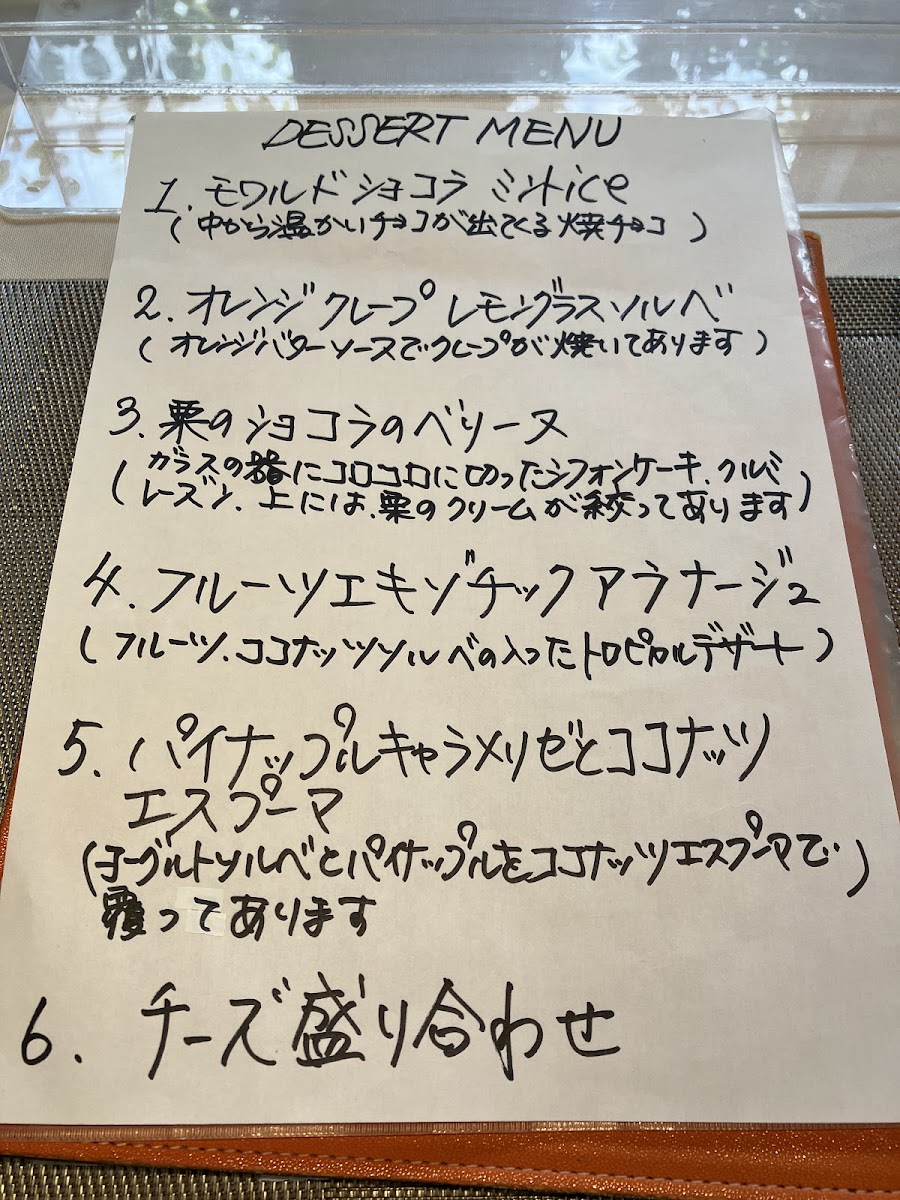 DESSERT MENU
1. モワルルド ショコラ ミントice
(中から温かいチョコが出てくる焼チョコ)
2. オレンジクレープ レモングラスソルベ
(オレンジバターソースでクレープが焼いてあります)
3.栗のショコラのベリーヌ
(ガラスの器にコロコロに切ったシフォンケーキ、クルミ
レーズン、上には、栗のクリームが絞ってあります)
4. フルーツエキゾチック アラナージュ
(フルーツ、ココナッツソルベの入ったトロピカルデザート)
5. パイナップルキャラメリゼとココナッツ
エスプーマ
(ヨーグルトソルベとパイナップルをココナッツエスプーマで)
覆ってあります
6. チーズ盛り合わせ